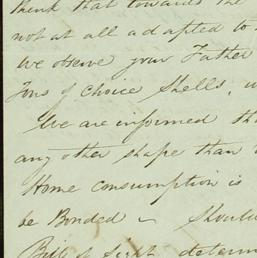 think that towards the
not at all adapted to
We observe your Father
Tons of Choice Shells,
We are informed
any other shape than
Home consumption is
be Bonded — Should
Bill of Sight determ